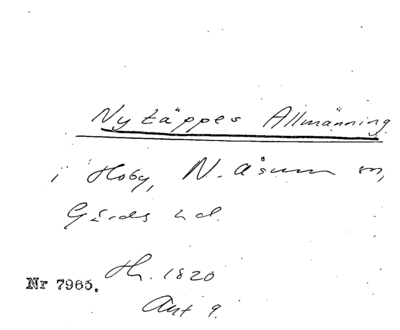 Nytäppes Allmänning
i Hoby, N. Åsum sn,
Gärds hd.
Hr. 1820
Nr 7965.
Akt 9.